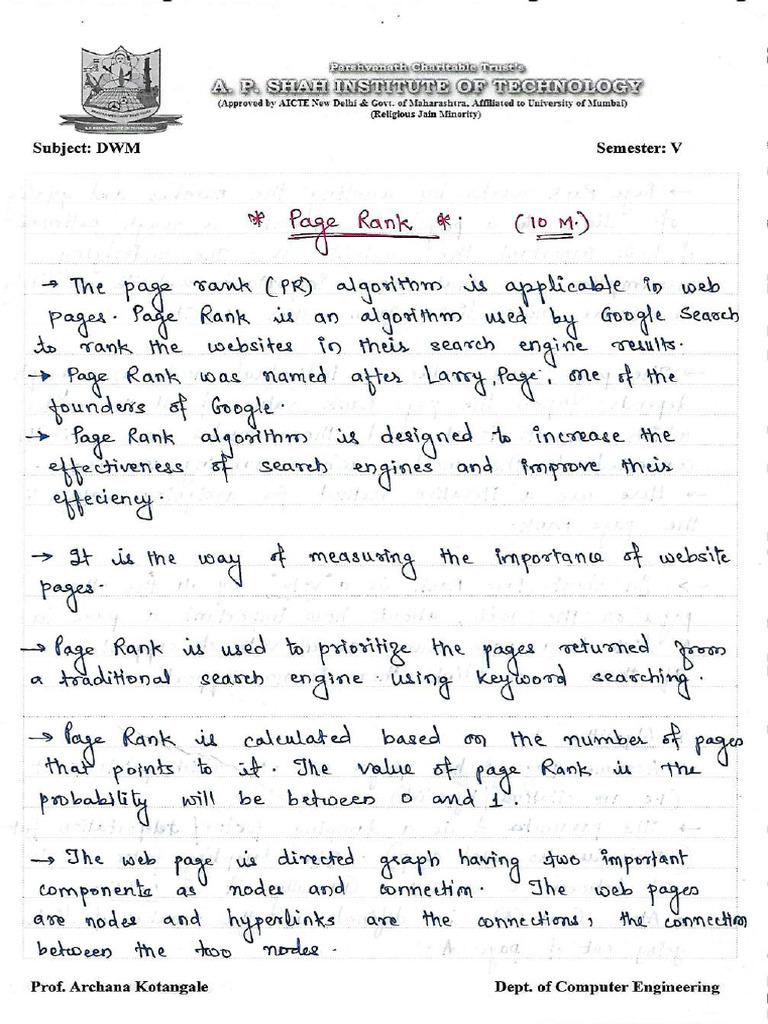 Parshvanath Charitable Trust's
A. P. SHAH INSTITUTE OF TECHNOLOGY
(Approved by AICTE New Delhi & Govt. of Maharashtra, Affiliated to University of Mumbai)
(Religious Jain Minority)
Subject: DWM Semester: V
* Page Rank *. (10 M.)
→ The page rank (PR) algorithm is applicable in web
pages. Page Rank is an algorithm used by Google Search
to rank the websites in their search engine results.
→ Page Rank was named after Larry, Page, one of the
founders of Google.
→ Page Rank algorithm is designed to increase the
effectiveness of search engines and improve their
effeciency.
→ It is the way of measuring the importance of website
pages.
→ Page Rank is used to prioritize the pages returned from
a traditional search engine using keyword searching.
→ Page Rank is calculated based on the number of pages
that points to it. The value of page Rank is the
probability will be between 0 and 1.
→ The web page is directed graph having two important
components as nodes and connection. The web pages
are nodes and hyperlinks are the connections, the connection
between the two nodes.
Prof. Archana Kotangale Dept. of Computer Engineering